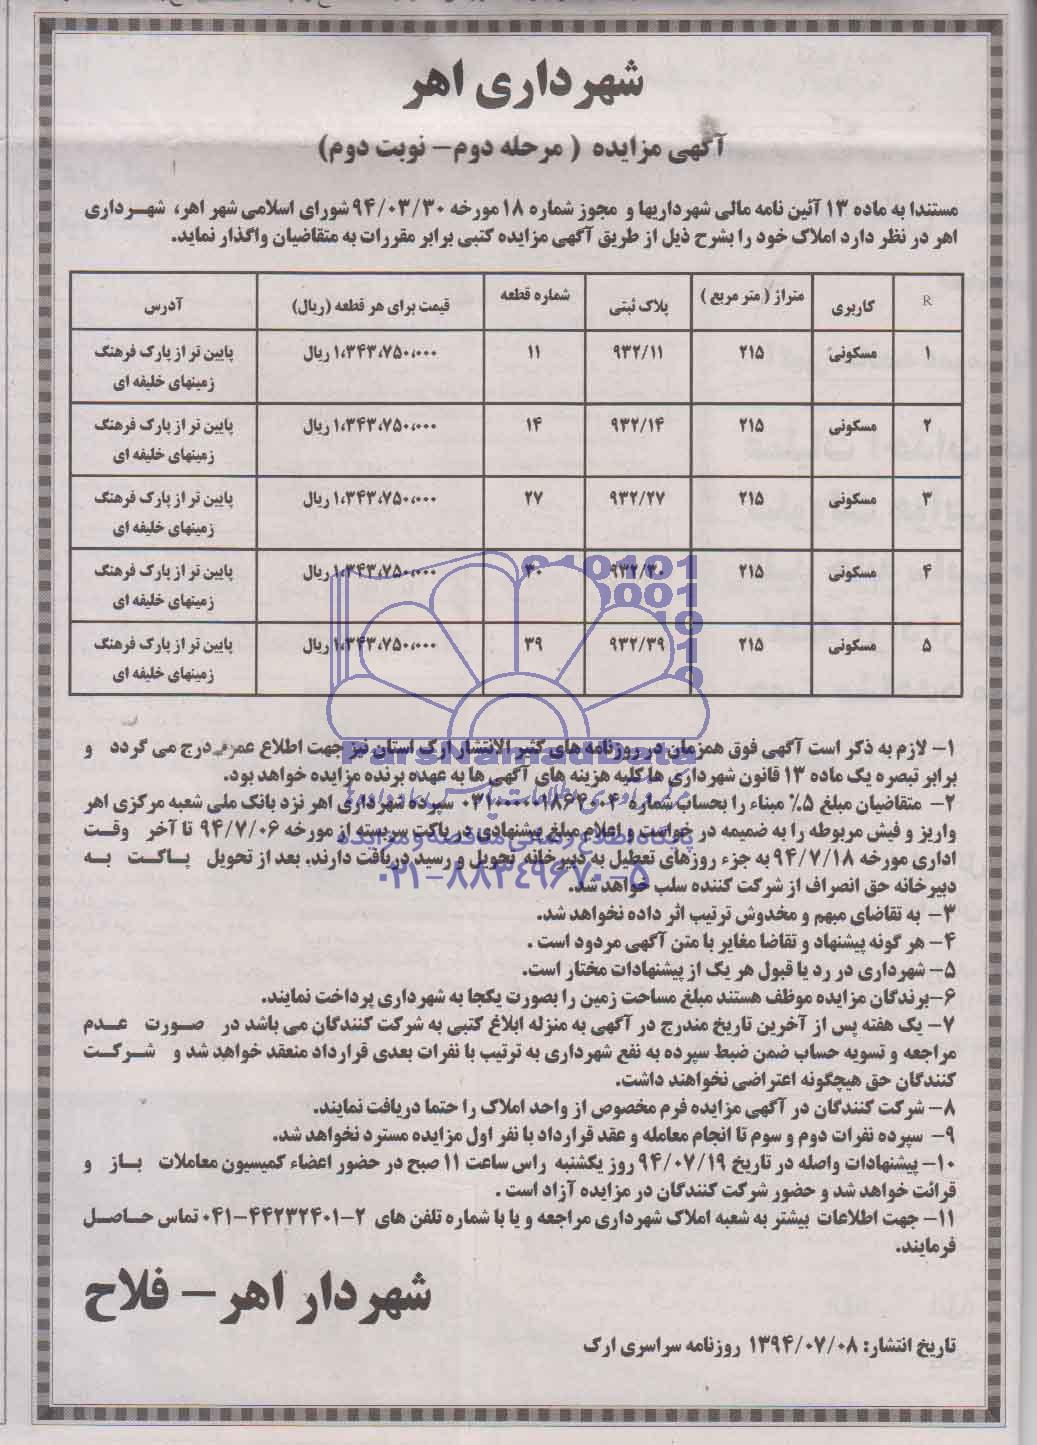 شهرداری اهر
آگهی مزایده ( مرحله دوم- نوبت دوم)
مستندا به ماده ۱۳ آئین نامه مالی شهرداریها و مجوز شماره ۱۸ مورخه ۹۴/۰۳/۳۰ شورای اسلامی شهر اهر، شهرداری
اهر در نظر دارد املاک خود را بشرح ذیل از طریق آگهی مزایده کتبی برابر مقررات به متقاضیان واگذار نماید.
R کاربری متراژ ( متر مربع ) پلاک ثبتی شماره قطعه قیمت برای هر قطعه (ریال) آدرس
۱ مسکونی ۲۱۵ ۹۳۲/۱۱ ۱۱ ۱،۳۴۳،۷۵۰،۰۰۰ ریال پایین تر از پارک فرهنگ
زمینهای خلیفه ای
۲ مسکونی ۲۱۵ ۹۳۲/۱۴ ۱۴ ۱،۳۴۳،۷۵۰،۰۰۰ ریال پایین تر از پارک فرهنگ
زمینهای خلیفه ای
۳ مسکونی ۲۱۵ ۹۳۲/۲۷ ۲۷ ۱،۳۴۳،۷۵۰،۰۰۰ ریال پایین تر از پارک فرهنگ
زمینهای خلیفه ای
۴ مسکونی ۲۱۵ ۹۳۲/۳۰ ۳۰ ۱،۳۴۳،۷۵۰،۰۰۰ ریال پایین تر از پارک فرهنگ
زمینهای خلیفه ای
۵ مسکونی ۲۱۵ ۹۳۲/۳۹ ۳۹ ۱،۳۴۳،۷۵۰،۰۰۰ ریال پایین تر از پارک فرهنگ
زمینهای خلیفه ای
۱- لازم به ذکر است آگهی فوق همزمان در روزنامه های کثیر الانتشار ارک استان نیز جهت اطلاع عموم درج می گردد و
برابر تبصره یک ماده ۱۳ قانون شهرداری ها کلیه هزینه های آگهی ها به عهده برنده مزایده خواهد بود.
۲- متقاضیان مبلغ ۵٪ مبناء را بحساب شماره سپرده شهرداری اهر نزد بانک ملی شعبه مرکزی اهر
واریز و فیش مربوطه را به ضمیمه در خواست و اعلام مبلغ پیشنهادی در پاکت سربسته از مورخه ۹۴/۷/۰۶ تا آخر وقت
اداری مورخه ۹۴/۷/۱۸ به جزء روزهای تعطیل به دبیرخانه تحویل و رسید دریافت دارند. بعد از تحویل پاکت به
دبیرخانه حق انصراف از شرکت کننده سلب خواهد شد.
۳- به تقاضای مبهم و مخدوش ترتیب اثر داده نخواهد شد.
۴- هر گونه پیشنهاد و تقاضا مغایر با متن آگهی مردود است .
۵- شهرداری در رد یا قبول هر یک از پیشنهادات مختار است.
۶-برندگان مزایده موظف هستند مبلغ مساحت زمین را بصورت یکجا به شهرداری پرداخت نمایند.
۷- یک هفته پس از آخرین تاریخ مندرج در آگهی به منزله ابلاغ کتبی به شرکت کنندگان می باشد در صورت عدم
مراجعه و تسویه حساب ضمن ضبط سپرده به نفع شهرداری به ترتیب با نفرات بعدی قرارداد منعقد خواهد شد و شرکت
کنندگان حق هیچگونه اعتراضی نخواهند داشت.
۸- شرکت کنندگان در آگهی مزایده فرم مخصوص از واحد املاک را حتما دریافت نمایند.
۹- سپرده نفرات دوم و سوم تا انجام معامله و عقد قرارداد با نفر اول مزایده مسترد نخواهد شد.
۱۰- پیشنهادات واصله در تاریخ ۹۴/۰۷/۱۹ روز یکشنبه راس ساعت ۱۱ صبح در حضور اعضاء کمیسیون معاملات باز و
قرائت خواهد شد و حضور شرکت کنندگان در مزایده آزاد است .
۱۱- جهت اطلاعات بیشتر به شعبه املاک شهرداری مراجعه و یا با شماره تلفن های ۲-۰۴۱-۴۴۲۳۲۴۰۱ تماس حاصل
فرمایند.
شهردار اهر- فلاح
تاریخ انتشار: ۱۳۹۴/۰۷/۰۸ روزنامه سراسری ارک
ParsNamadData
پایگاه اطلاع رسانی مناقصه و مزایده
۰۲۱-۸۸۳۴۹۶۷۰-۵